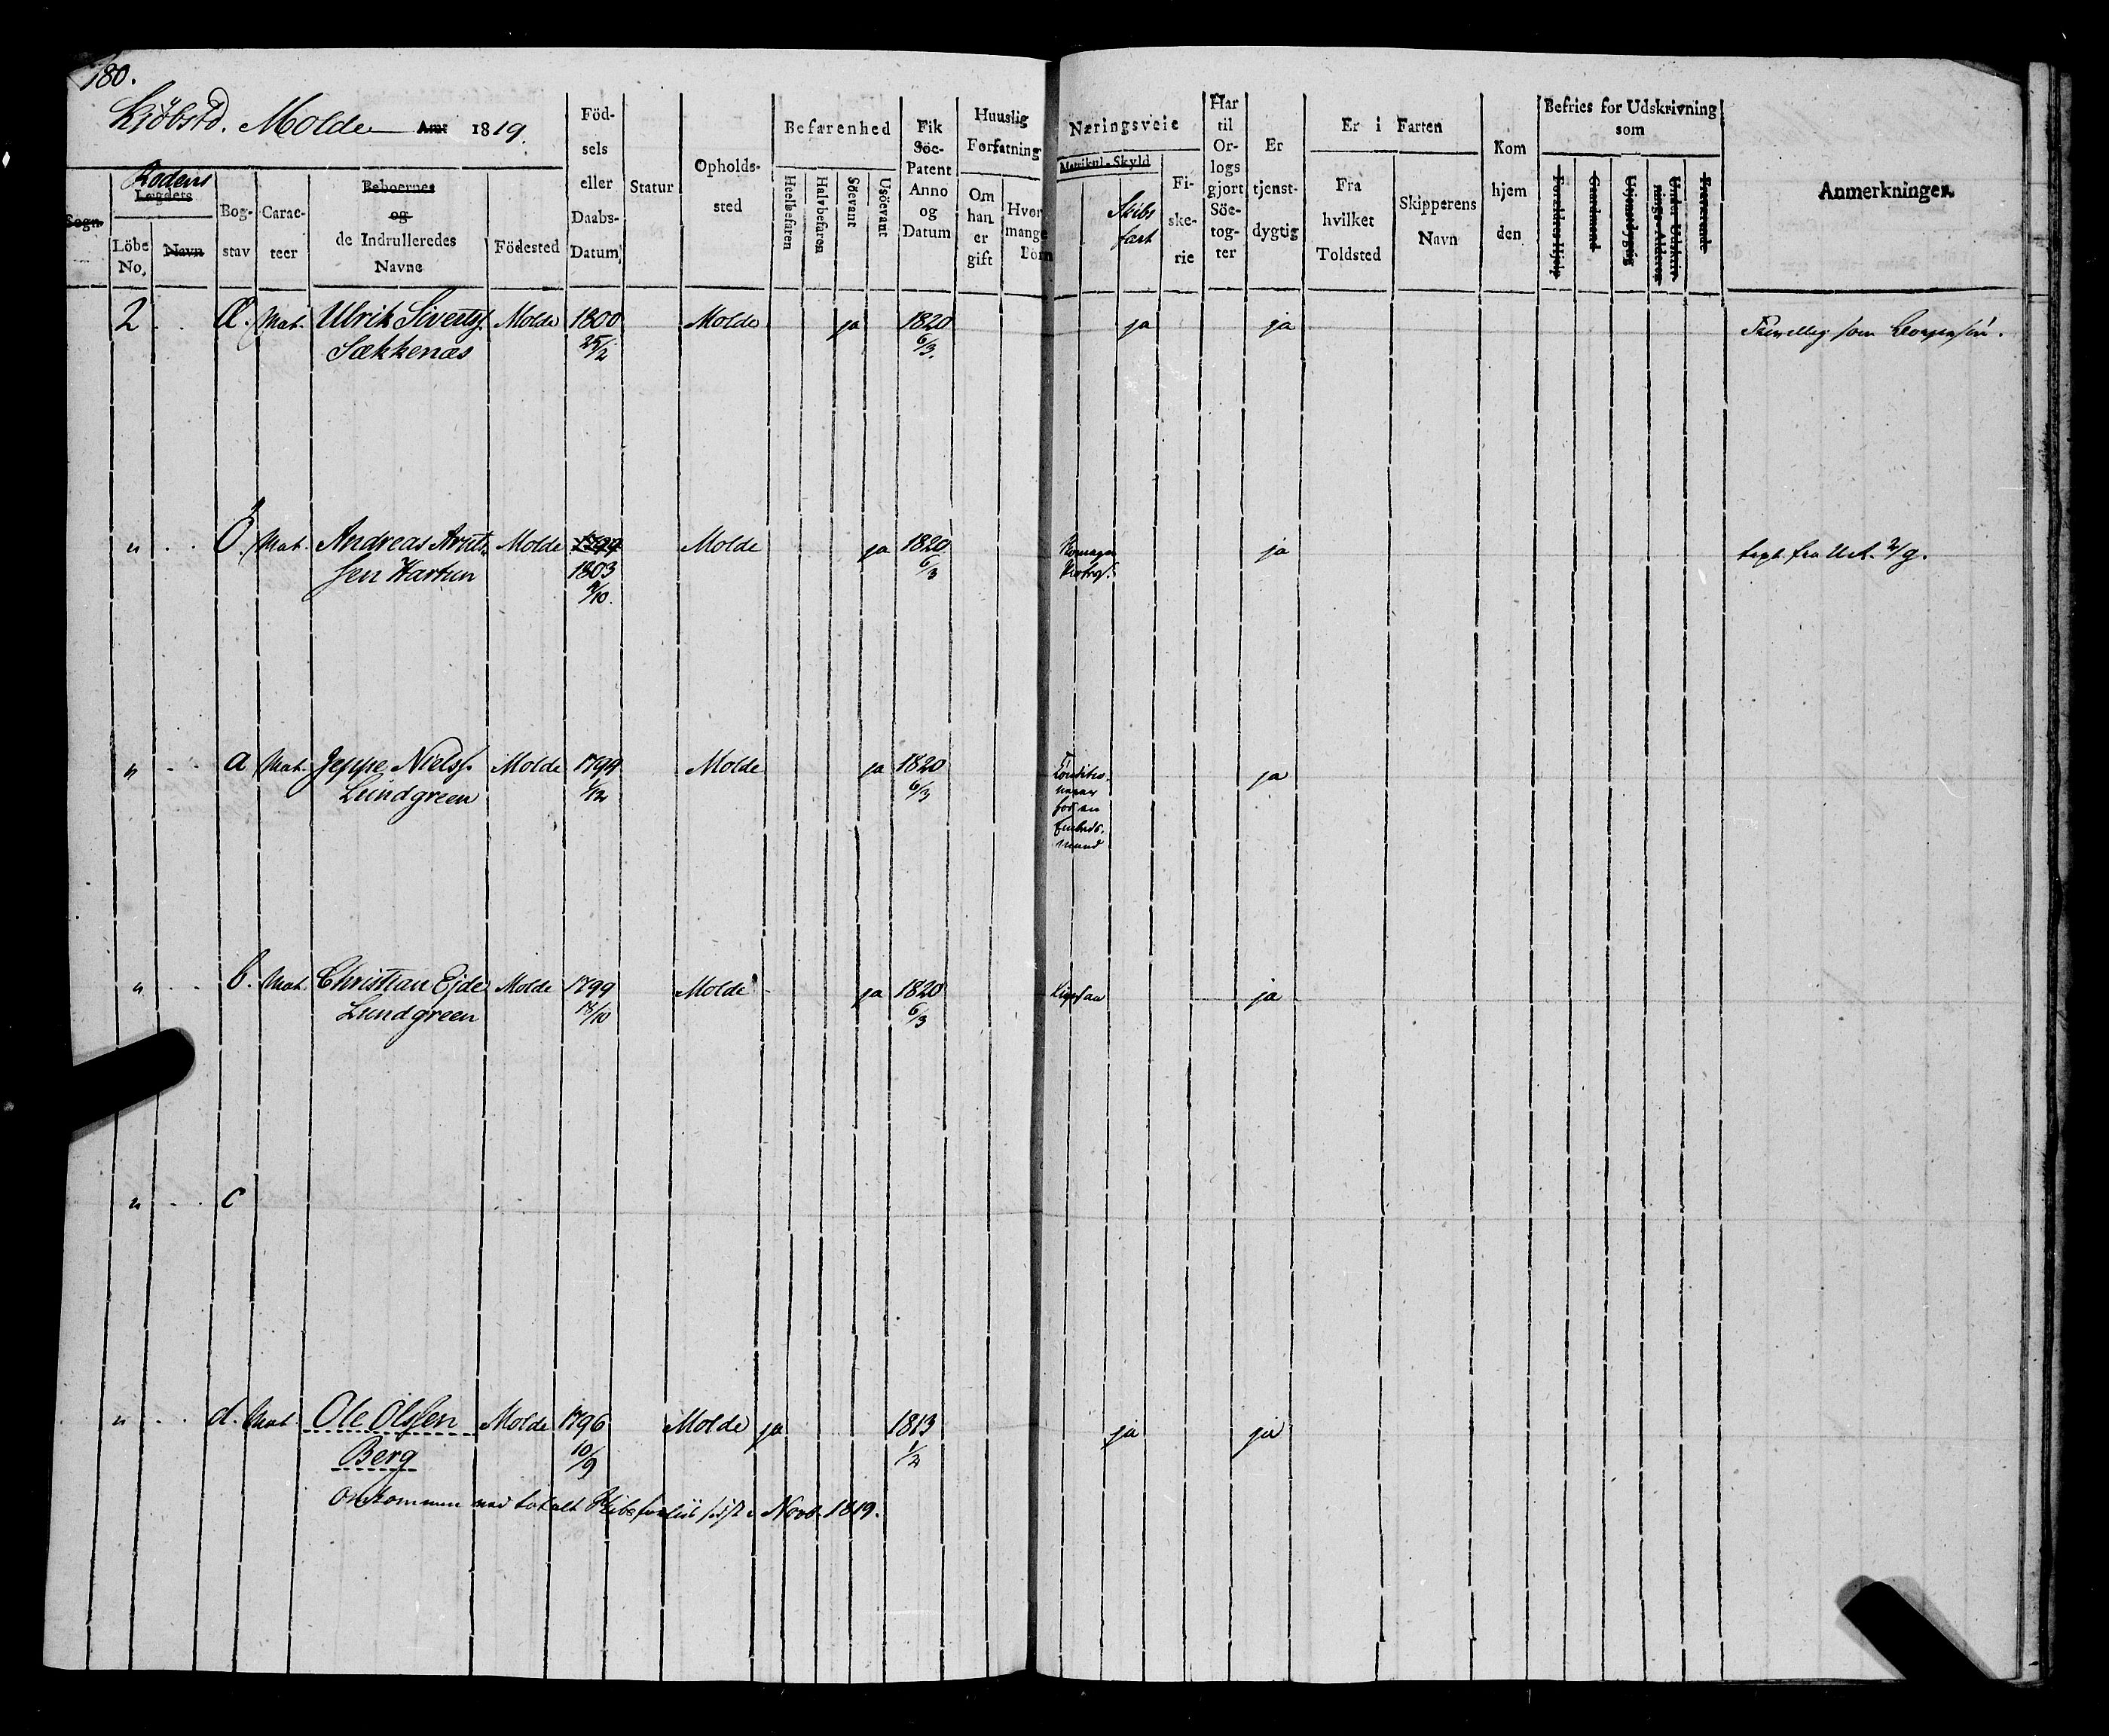 180.
Kjöbstd. Molde Amt 1819.
Sogn
Rodens
Lægdets
Löbe No.
Navn
Bog-stav
Carac-teer
Beboernes
og
de Indrulleredes
Navne
Födested
Föd-
sels
eller
Daabs-
Datum
Statur
Opholds-
sted
Befarenhed
Heelbefaren
Halvbefaren
Söevant
Usöevant
Fik
Söe-
Patent
Anno
og
Datum
Huuslig
Forfatning
Om
han
er
gift
Hvor
mange
Börn
Næringsveie
Matrikul-Skyld
Skibs
fart
Fi-
ske-
rie
Har
til
Or-
logs
gjort
Söe-
tog-
ter
Er
tjenst-
dygtig
Er i Farten
Fra
hvilket
Toldsted
Skipperens
Navn
Kom
hjem
den
Befries for Udskrivning
som
Forældres Hjelp
Gaardmand
Utjenstdygtig
Under Udskriv-
nings-Alderen
Fraværende
Anmerkninger.
2 Æ. Mat. Ulrik Sivertsf. Molde 1800 Molde ja 1820 ja ja
Sækkenæs 25/2 6/3.
" Ö. Mat. Andreas Molde 1799 Molde ja 1820 ja
sen Hartun 1803 6/3
/10.
" a Mat. Jeppe Nielsf. Molde 1794 Molde ja 1820 ja
Lundgreen /12 6/3
for en
Embeds.
mand
" b. Mat. Christian Ejde Molde 1799 Molde ja 1820 ja
Lundgreen /10 6/3
" c
" d. Mat. Ole Olssen Molde 1796 Molde ja 1813 ja ja
Berg 10/9 1/2
Omkommen ved totalt Skibsforliis sidst i Novb. 1819.